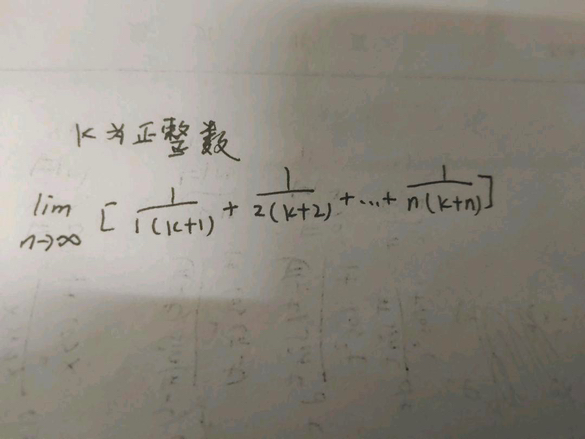 K为正整数
lim n→∞ [ 1/1(k+1) + 1/2(k+2) + ... + 1/n(k+n) ]